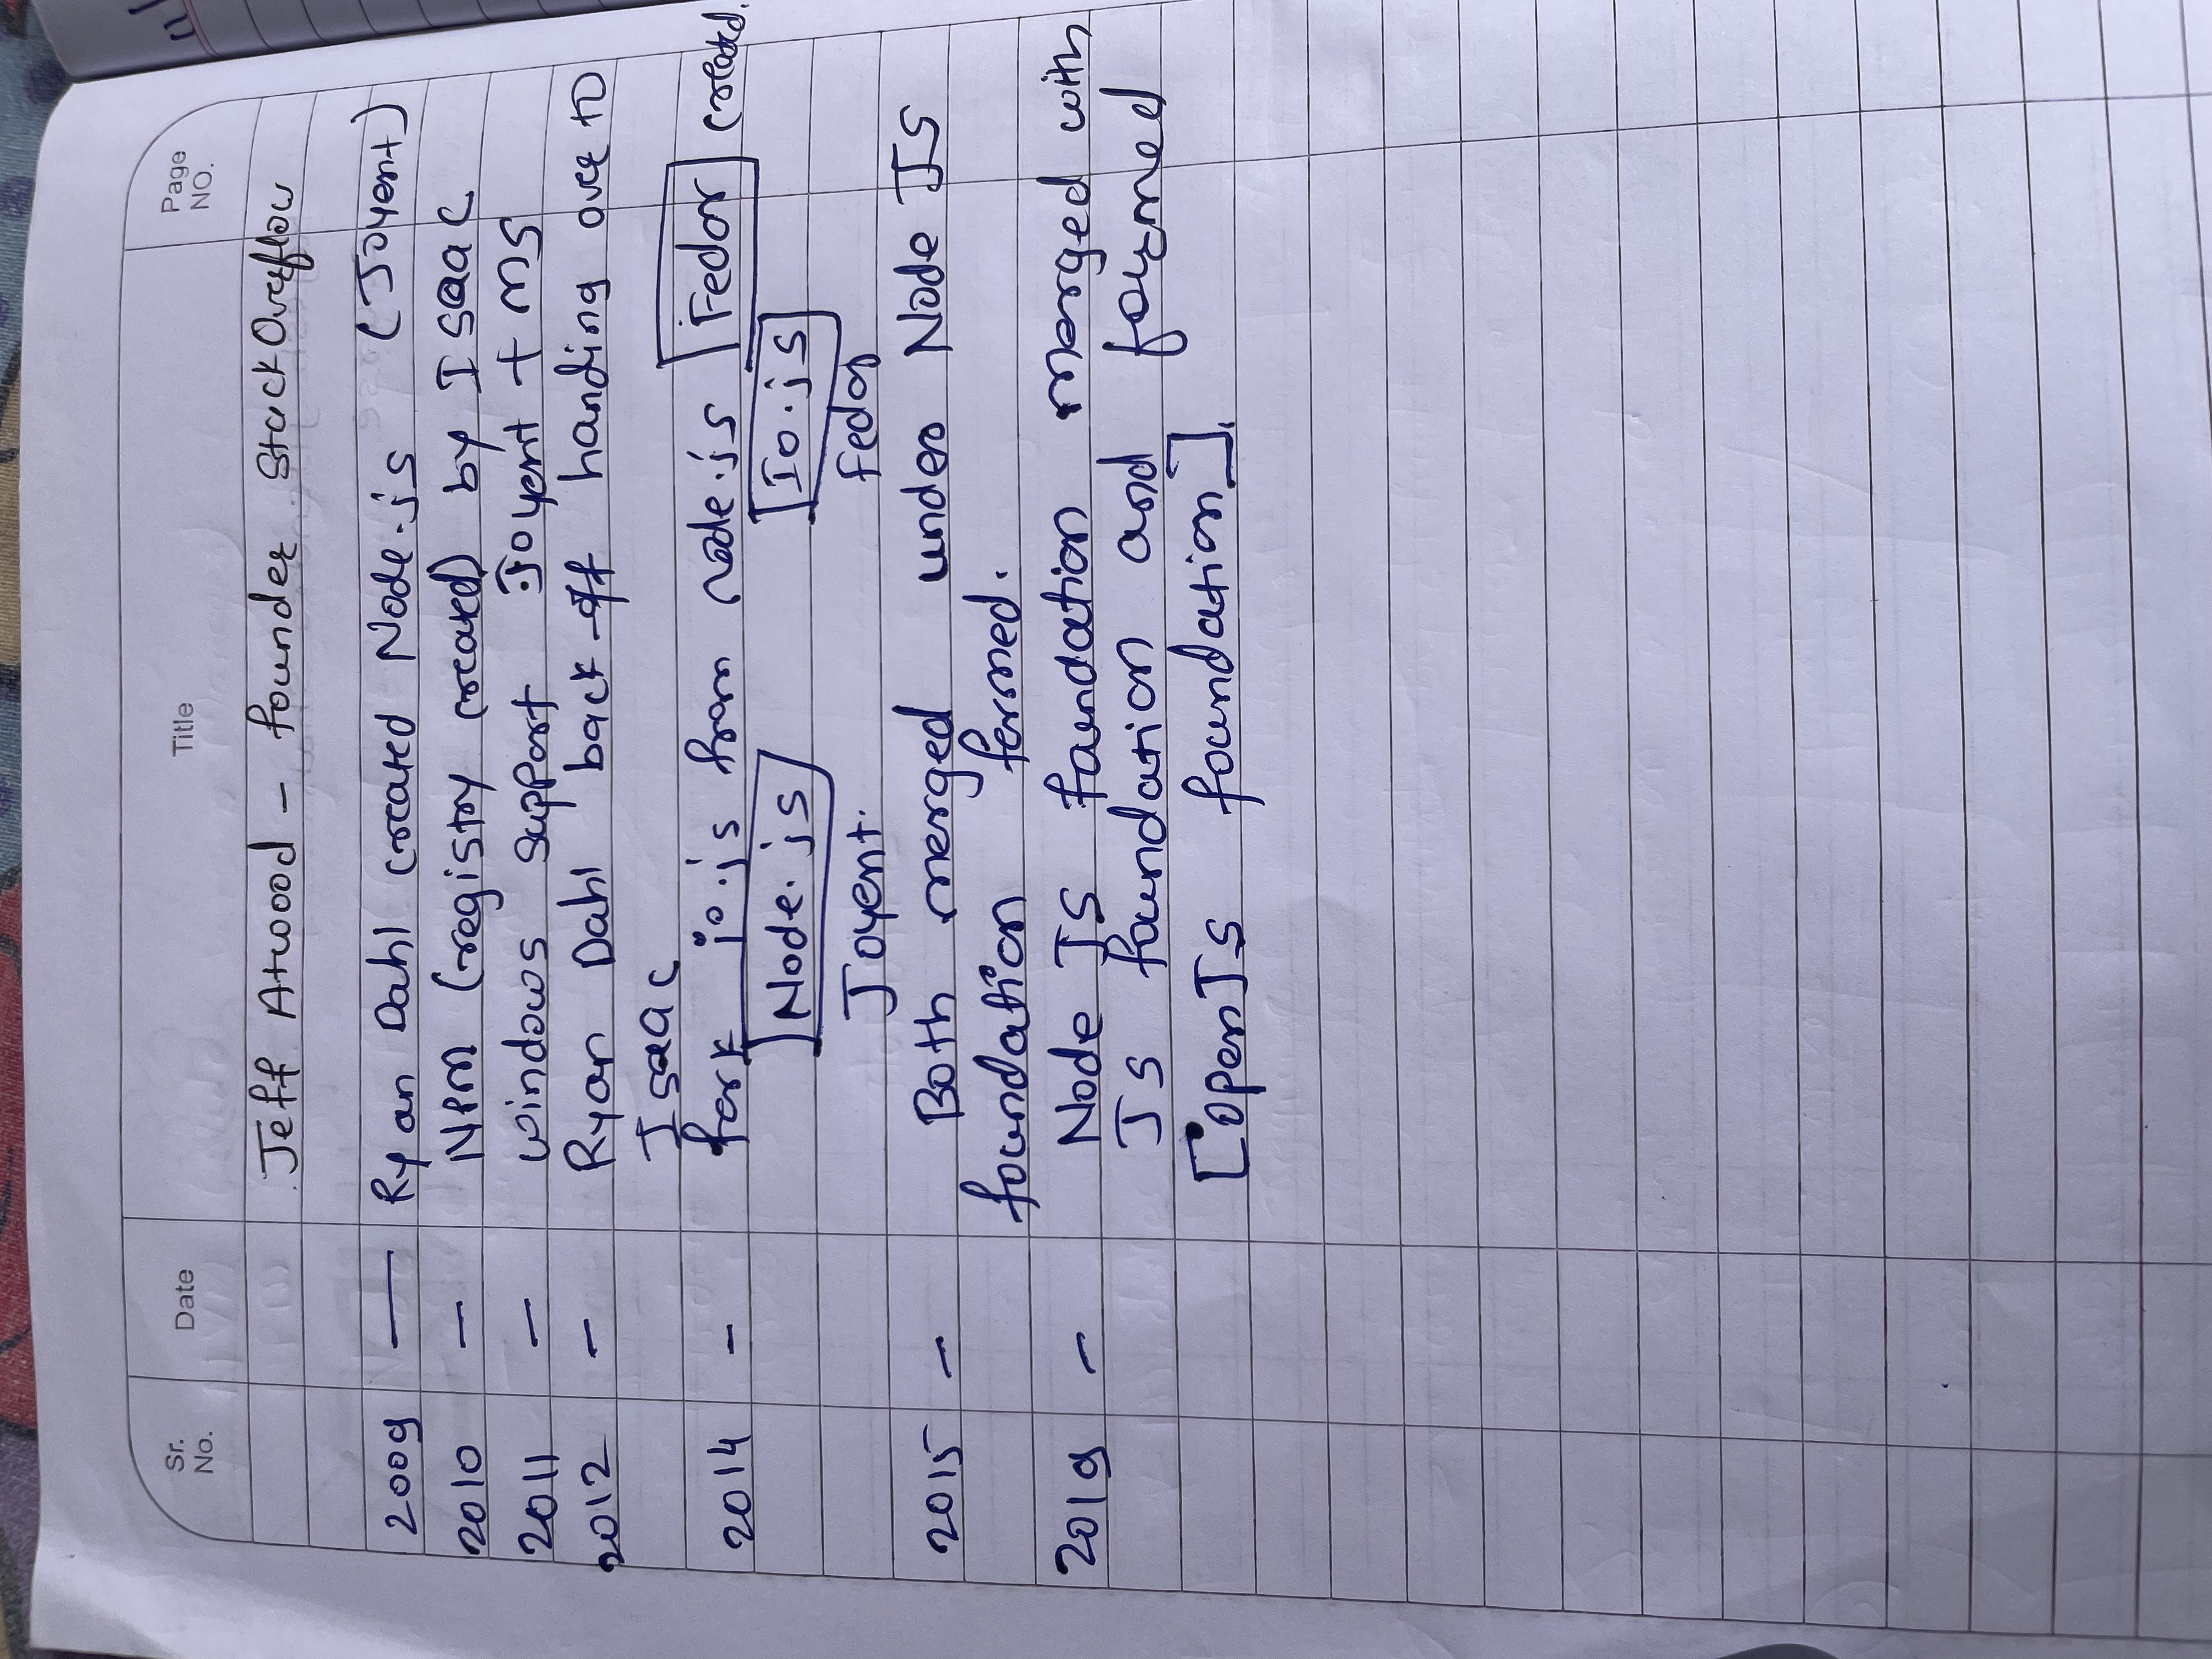 Sr. No. Date Title Page NO.
Jeff Atwood - founder StackOverflow
2009 — Ryan Dahl created Node.js (Joyent)
2010 - NPM (registry created) by Isaac
2011 - windows support Joyent + MS
2012 - Ryan Dahl back off handing over to
Isaac
2014 - fork io.js from node.js Fedor created.
Node.js Io.js
Joyent. Fedor
2015 - Both merged under Node JS
foundation formed.
2019 - Node JS foundation merged with
JS foundation and formed
[openJs foundation].